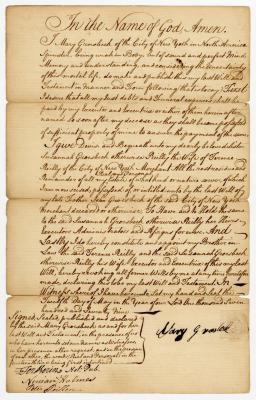 In the Name of God, Amen.
I Mary Grosbeck of the City of New York in North America
Spinster Being weak in Body, but of sound and perfect Mind
Memory and understanding, and considering the Uncertainty
of this mortal life, do make and publish this my last Will and
Testament in manner and Form following that is to say; First
I desire that all my Just debts and Funeral expences shall be
paid by my Executrix and Executor or either of them herein after
named so soon after my decease as they shall become possessed
of sufficient property of mine to ensure the payment of the same
I give Devise and Bequeath unto my dearly beloved Sister
Susannah Grosbeck otherwise Reilly, the Wife of Terence
Reilly of the City of New York, Merchant All the rest and
Residue of all my Estate of what kind or nature soever, which
I am now seized, possessed of, or intitled unto by the last Will of
my late Father John Grosbeck of the said City of New York
Merchant deceased or otherwise; To Have and to Hold the same
to the said Susannah Grosbeck otherwise Reilly her Heirs
Executors Administrators and Assigns for ever. And
Lastly I do hereby constitute and appoint my Brother in
Law the said Terence Reilly and the said Susannah Grosbeck
otherwise Reilly his Wife Executor and Executrix of this my last
Will, hereby revoking all former Wills by me at any time heretofore
made declaring this to be my last Will and Testament. In
Witness whereof I have hereunto set my hand and Seal this
Twelfth day of May in the Year of our Lord One thousand Seven
hundred and Seventy Nine
Signed Sealed published and declared
by the said Mary Grosbeck as and for her
last Will and Testament, in the presence of us
Mary Grosbeck